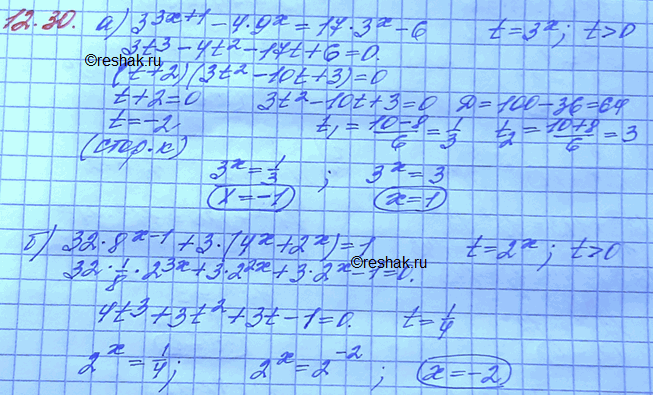 12.30. а) 3^{3x+1} - 4·9^x = 17·3^x - 6    t = 3^x; t>0
3t^3 - 4t^2 - 17t + 6 = 0.
©reshak.ru
(t+2)(3t^2 - 10t + 3) = 0
t+2=0    3t^2 - 10t + 3 = 0    D = 100 - 36 = 64
t = -2    t_1 = \frac{10-8}{6} = \frac{1}{3}    t_2 = \frac{10+8}{6} = 3
(стор.к)
3^x = \frac{1}{3};    3^x = 3
x = -1    x = 1
©reshak.ru
б) 32·8^{x-1} + 3·(4^x + 2^x) = 1    t = 2^x; t>0
©reshak.ru
32·\frac{1}{8}·2^{3x} + 3·2^{2x} + 3·2^x - 1 = 0.
4t^3 + 3t^2 + 3t - 1 = 0.    t = \frac{1}{4}
2^x = \frac{1}{4};    2^x = 2^{-2};    x = -2
©reshak.ru